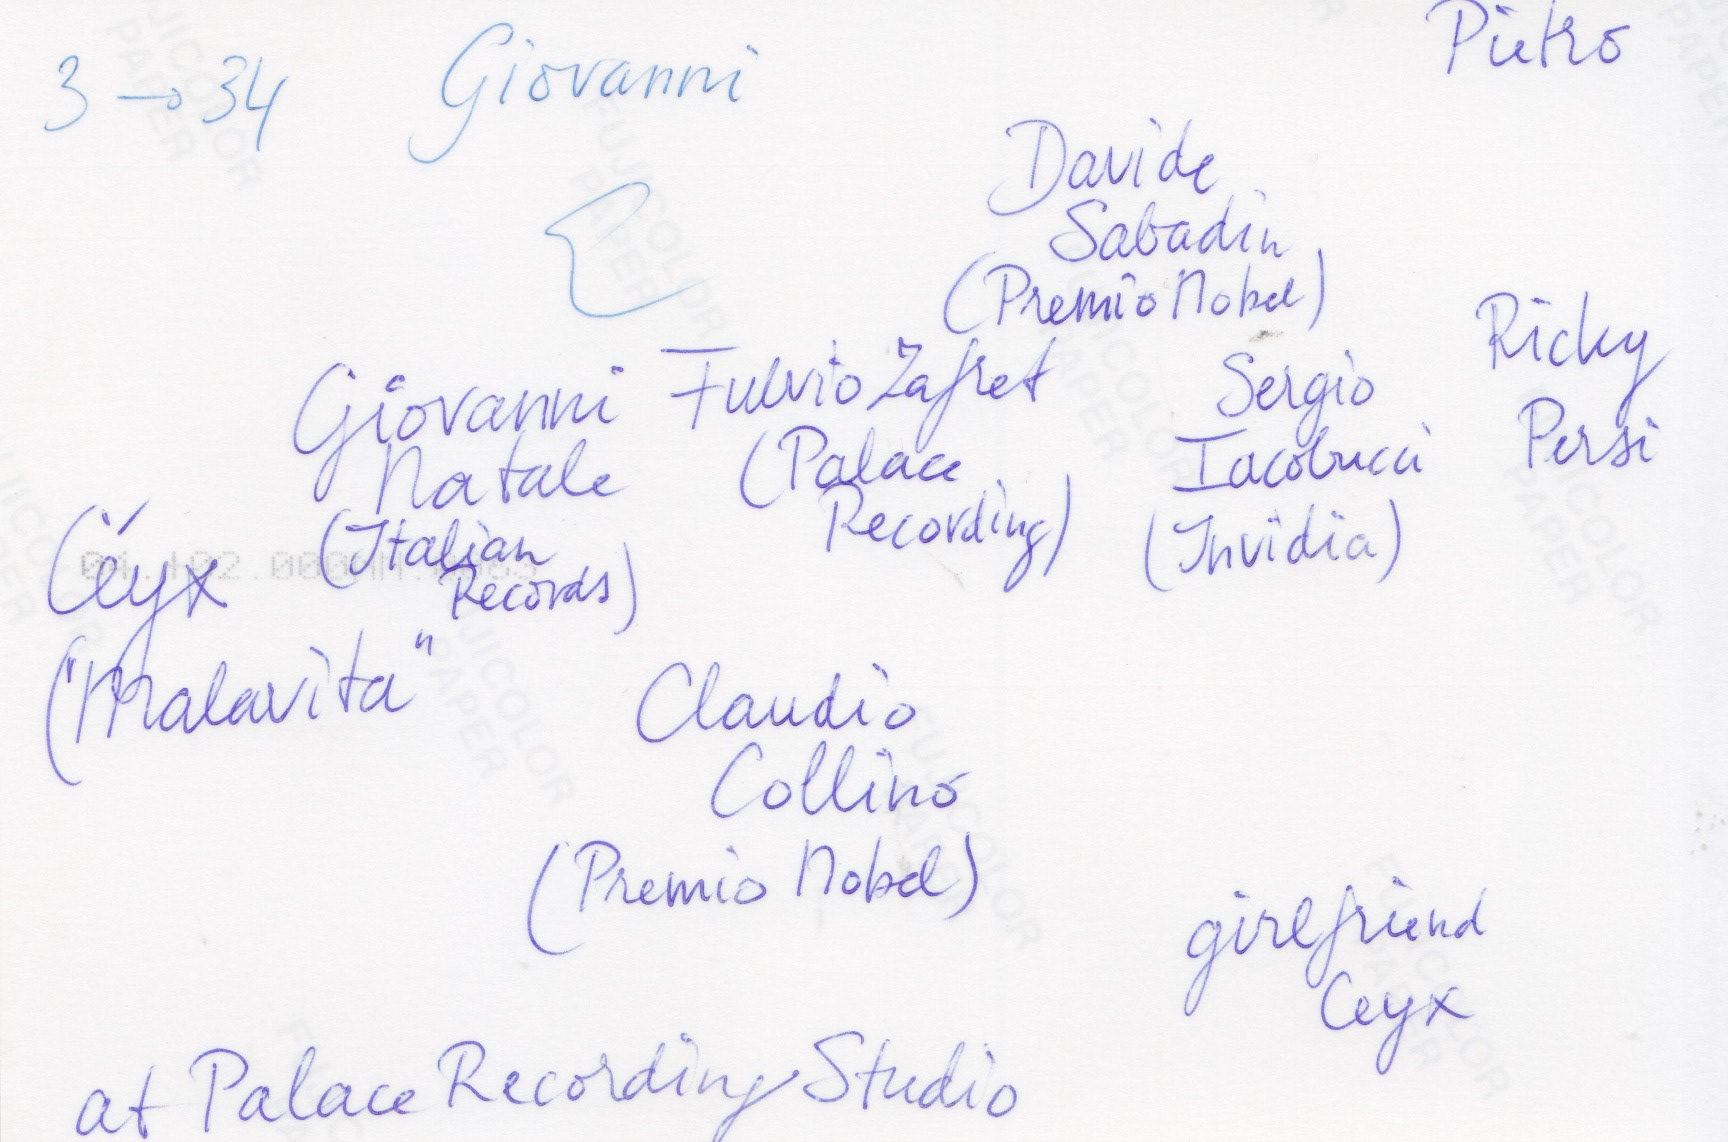 3 → 34
Giovanni
Pietro
Davide
Sabadin
(Premio Nobel)
Ricky
Persi
Giovanni
Natale
(Italian
Records)
Fulvio Zafret
(Palace
Recording)
Sergio
Iacobucci
(Invidia)
Ceyx
("Malavita"
Claudio
Collino
(Premio Nobel)
girlfriend
Ceyx
at Palace Recording Studio
FUJICOLOR
PAPER